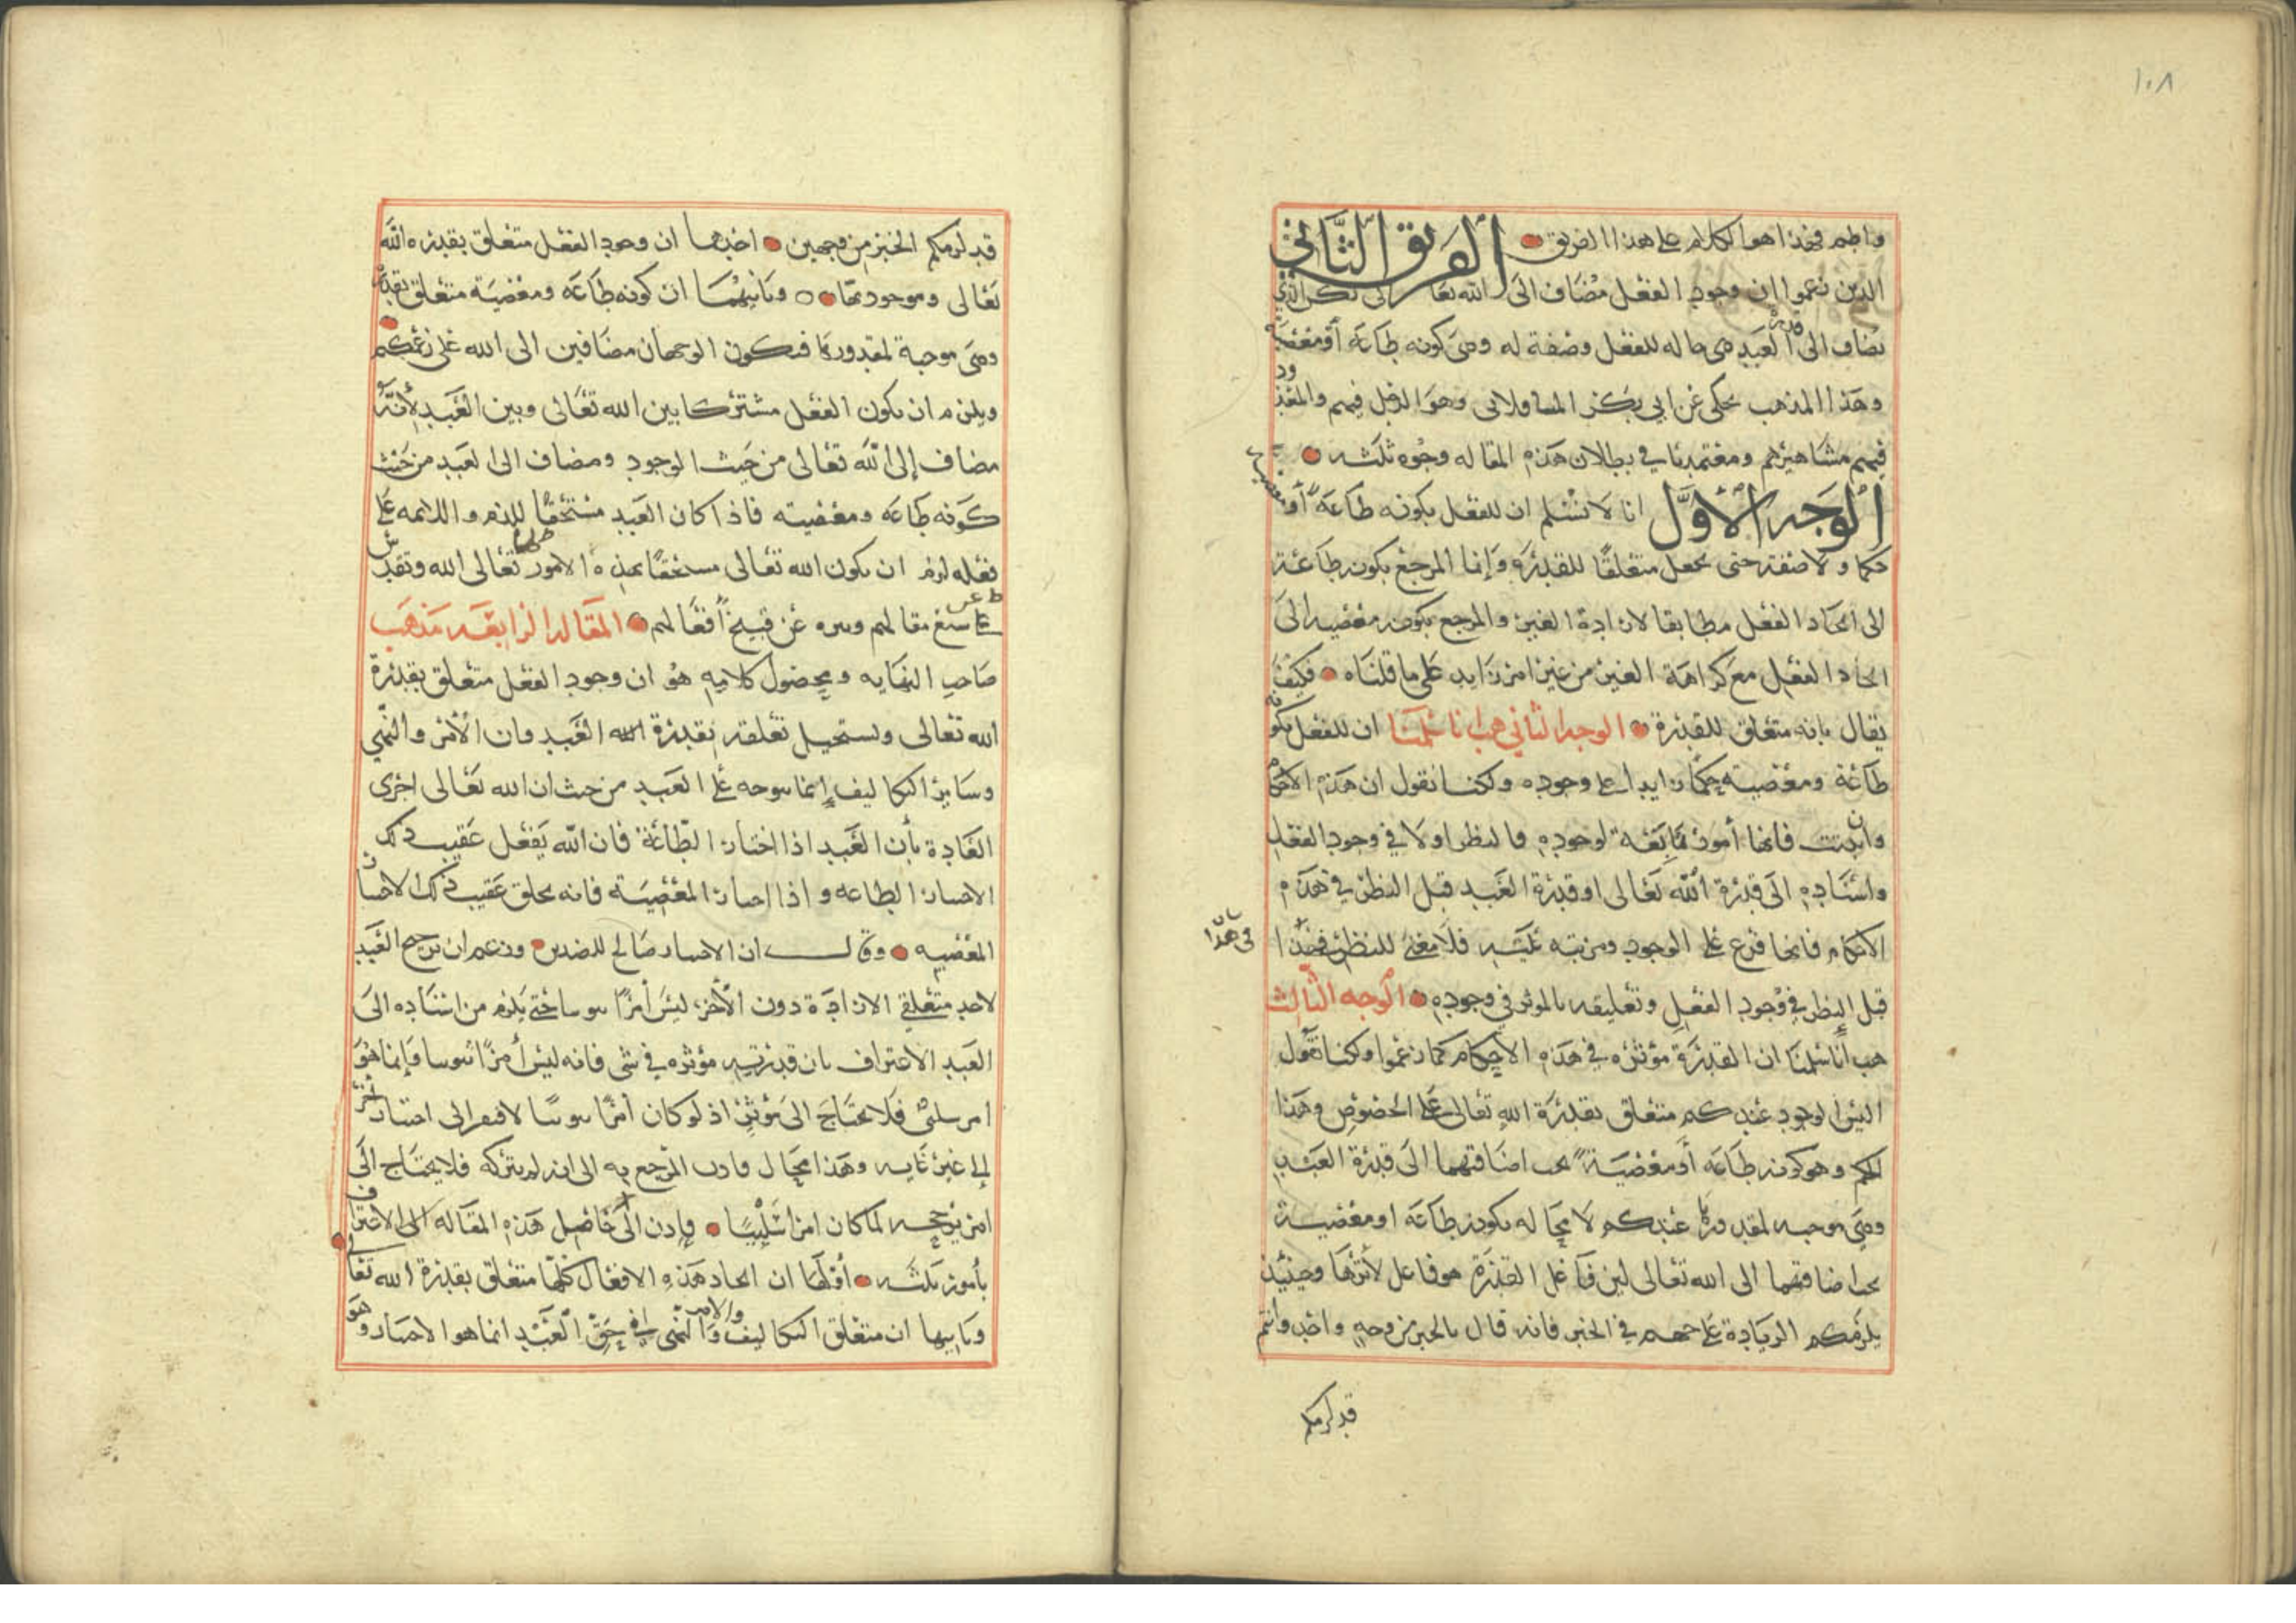 ١٠٨
واطم فهذا هو الكلام على هذا الفريق الفريق الثاني
الذين زعموا ان وجود الفعل مضاف الى الله تعالى لكن الذي
يضاف الى قدرة العبد هي حاله للفعل وصفة له وهي كونه طاعه أو معصية
وهذا المذهب يحكى عن ابي بكر الباقلاني وهو الرجل فيهم والمعدود
فيهم مشاهيرهم ومعتمدنا في بطلان هذه المقاله وجوه ثلثه
الوجه الأول انا لا نسلم ان للفعل بكونه طاعة أو معصية
حكما ولا صفة حتى يجعل متعلقا للقدرة وإنما المرجع بكونه طاعة
الى ايجاد الفعل مطابقا لارادة الغير والمرجع بكونه معصيه الى
ايجاد الفعل مع كراهة الغير من غير امر زايد على ما قلناه فكيف
يقال بانه متعلق للقدرة الوجه الثاني هب انا سلمنا ان للفعل بكونه
طاعة ومعصية حكما زايدا على وجوده ولكنا نقول ان هذه الاحكام
وان ثبتت فانها أمور تابعة لوجوده فالنظر اولا في وجود الفعل
واسناده الى قدرة الله تعالى او قدرة العبد قبل النظر في هذه
الاحكام فانها فرع على الوجود ومرتبه عليه فلا معنى للنظر في هذا
في هذا
قبل النظر في وجود الفعل وتعليقه بالموثر في وجوده الوجه الثالث
هب أنا سلمنا ان القدرة مؤثره في هذه الأحكام كما زعموا ولكنا نقول
اليس الوجود عندكم متعلق بقدرة الله تعالى على الخصوص وهذا
الحكم وهو كونه طاعه أو معصية يجب اضافتهما الى قدرة العبد
وهي موجبه لمقدورها عندكم لا محاله بكونه طاعه او معصية
يجب اضافتهما الى الله تعالى لين فاعل القدرة هو فاعل لأثرها وحينئذ
يلزمكم الزيادة على جهم في الخبر فانه قال بالجبر من وجه واحد وانتم
قد لزمكم
قد لزمكم الجبر من وجهين احدهما ان وجود الفعل متعلق بقدرة الله
تعالى وموجود بها وثانيهما ان كونه طاعه ومعصية متعلق بقدرته
وهي موجبة لمقدورها فيكون الوجهان مضافين الى الله على زعمكم
ويلزم ان يكون الفعل مشتركا بين الله تعالى وبين العبد لأنه
مضاف إلى الله تعالى من حيث الوجود ومضاف الى العبد من حيث
كونه طاعه ومعصيته فاذا كان العبد مستحقا للذم واللائمه على
فعله لزم ان يكون الله تعالى مستحقا بهذه الامور تعالى الله وتقدس
عن شنع مقالهم وتنزه عن قبيح أفعالهم المقاله الرابعه مذهب
صاحب النهايه ومحصول كلامه هو ان وجود الفعل متعلق بقدرة
الله تعالى ويستحيل تعلقه بقدرة العبد وان الأمر والنهي
وساير التكاليف إنما يتوجه على العبد من حيث ان الله تعالى اجرى
العادة بأن العبد اذا اختار الطاعة فان الله يفعل عقيب ذلك
الاختيار الطاعه واذا اختار المعصية فانه يخلق عقيب ذلك الاختيار
المعصيه وقال ان الاختيار صالح للضدين وزعم ان ترجيح العبد
لاحد متعلقي الارادة دون الأخر ليس أمرا ثبوتيا حتى يلزم من اسناده الى
العبد الاعتراف بان قدرته مؤثره في شي فانه ليس أمرا ثبوتيا وإنما هو
امر سلبي فلا يحتاج الى مؤثر اذ لو كان أمرا ثبوتيا لافتقر الى اختيار آخر
إلى غير غايه وهذا محال فاذن المرجع به الى انه لم يتركه فلا يحتاج الى
امر يرجحه لما كان امرا سلبيا فإذن حاصل هذه المقاله الى الاعتراف
بأمور ثلثه أولها ان ايجاد هذه الافعال كلها متعلق بقدرة الله تعالى
وثانيها ان متعلق التكاليف والامر والنهي في حق العبد انما هو الاختيار وهو